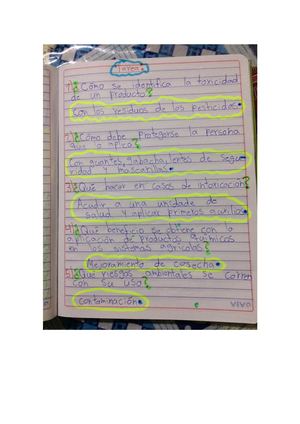 Tarea
1) ¿Cómo se identifica la toxicidad
de un producto?
Con los residuos de los pesticidas.
2) ¿Cómo debe protegerse la persona
que lo aplica?
Con guantes, gabacha, lentes de segu-
ridad y mascarillas.
3) ¿Qué hacer en casos de intoxicación?
Acudir a una unidade de
salud y aplicar primeros auxilios.
4) ¿Qué beneficio se obtiene con la
aplicación de productos químicos
en los sistemas agrícolas?
Mejoramiento de cosecha.
5) ¿Qué riesgos ambientales se corren
con su uso?
Contaminación.
VIVA